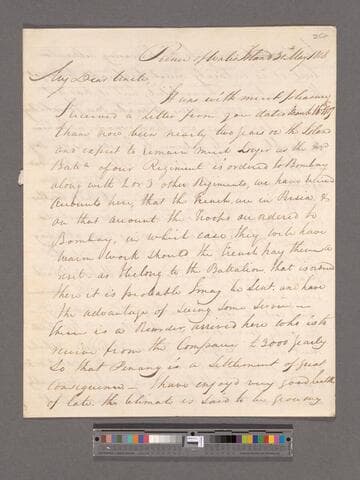 Prince of Wales Island 21st May 1808
My Dear Uncle,
It was with much pleasure
I received a letter from you dated March 16 1807
I have now been nearly two years on the Island
and expect to remain much longer as the
Batn of our Regiment is ordered to Bombay
along with 2 or 3 other Regiments, we have
accounts here, that the French are in Persia &
on that account the troops are ordered to
Bombay, in which case they will have
warm work should the French pay them a
visit. as I belong to the Battalion that is ordered
there it is probable I may be sent. and have
the advantage of seeing some service
there is a Recorder, arrived here who is to
receive from the Company £3000 yearly
So that Penang is a Settlement of great
consequence – I have enjoyed very good health
of late. the Climate is said to be growing